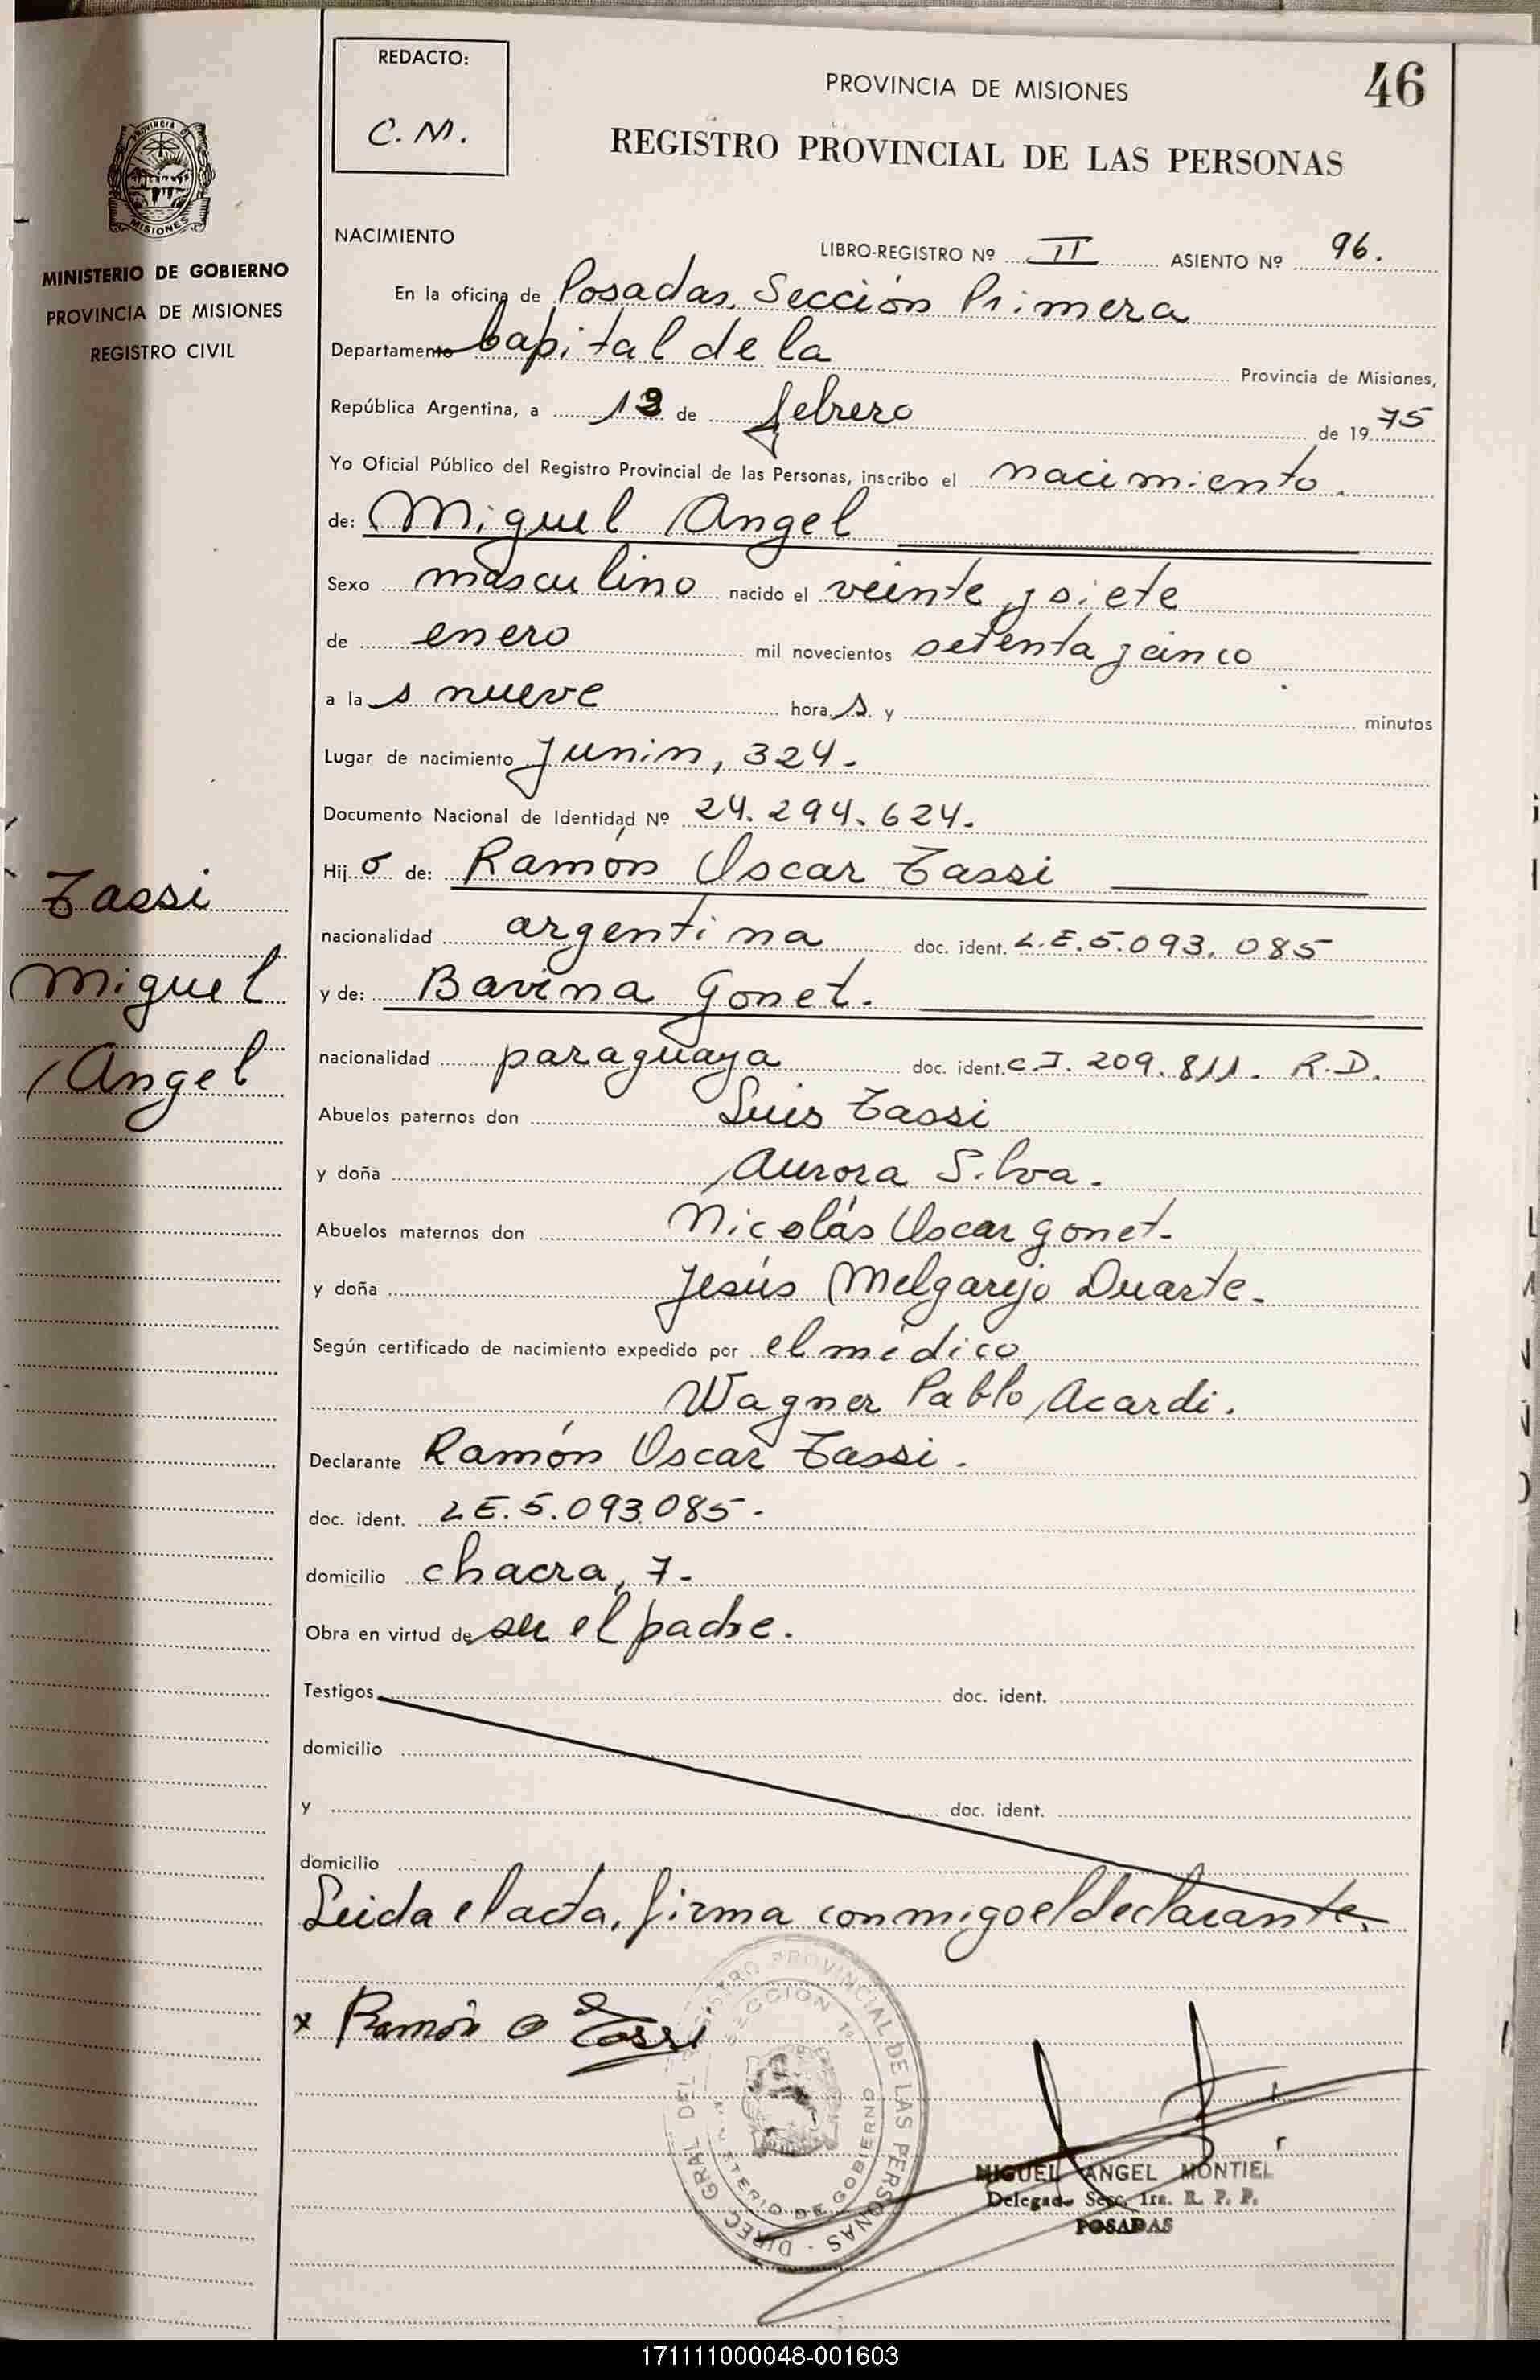 REDACTO:
C. M.
PROVINCIA DE MISIONES
46
REGISTRO PROVINCIAL DE LAS PERSONAS
MISIONES
MINISTERIO DE GOBIERNO
PROVINCIA DE MISIONES
REGISTRO CIVIL
NACIMIENTO
LIBRO-REGISTRO Nº II ASIENTO Nº 96.
En la oficina de Posadas. Sección Primera
Departamento Capital de la Provincia de Misiones,
República Argentina, a de febrero de 1975
Yo Oficial Público del Registro Provincial de las Personas, inscribo el nacimiento.
de: Miguel Angel
Sexo masculino nacido el veinte y siete
de enero mil novecientos setenta y cinco
a las nueve horas y minutos
Lugar de nacimiento Junin, 324.
Documento Nacional de Identidad Nº 24.294.624.
Hijo de: Ramón Oscar Tassi
nacionalidad argentina doc. ident. L.E.5.093.085
y de: Bavina Gonet.
nacionalidad paraguaya doc. ident. C.I. 209.811. R.D.
Abuelos paternos don Luis Tassi
y doña Aurora Silva.
Abuelos maternos don Nicolás Oscar Gonet.
y doña Jesús Melgarejo Duarte.
Según certificado de nacimiento expedido por el médico
Wagner Pablo Acardi.
Declarante Ramón Oscar Tassi.
doc. ident. L.E.5.093.085.
domicilio chacra, 7.
Obra en virtud de ser el padre.
Testigos doc. ident.
domicilio
y doc. ident.
domicilio
Leida el acta, firma conmigo el declarante.
x Ramón O Tassi
Tassi
Miguel
Angel
DIREC. GRAL. DEL REGISTRO PROVINCIAL DE LAS PERSONAS
SECCION 1ª
MINISTERIO DE GOBIERNO
MIGUEL ANGEL MONTIEL
Delegado Secc. 1ra. R. P. P.
POSADAS
171111000048-001603